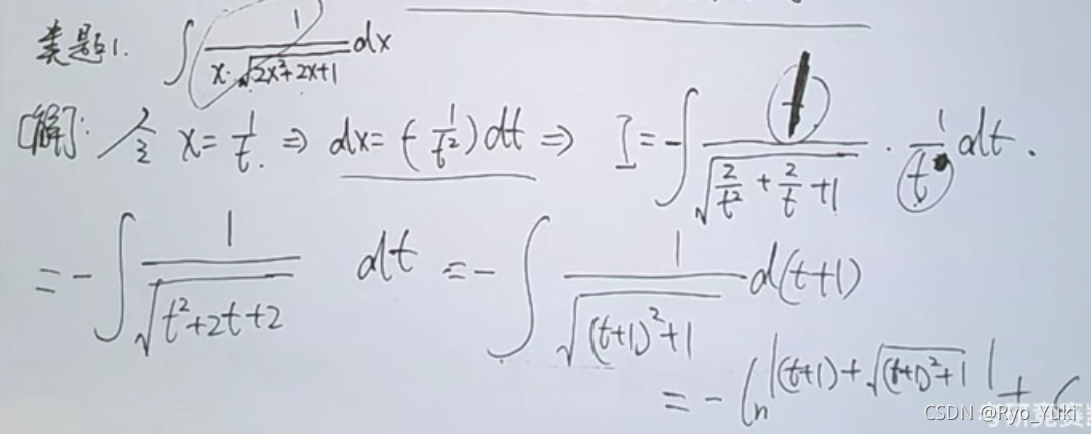 类题1. ∫ 1/(x·√(2x²+2x+1)) dx
[解]: 令 x = 1/t ⇒ dx = (-1/t²)dt ⇒ I = -∫ t/√(2/t² + 2/t + 1) · 1/t dt.
= -∫ 1/√(t²+2t+2) dt = -∫ 1/√((t+1)²+1) d(t+1)
= -ln|(t+1)+√((t+1)²+1)| + C
CSDN @Ryo_Yuki